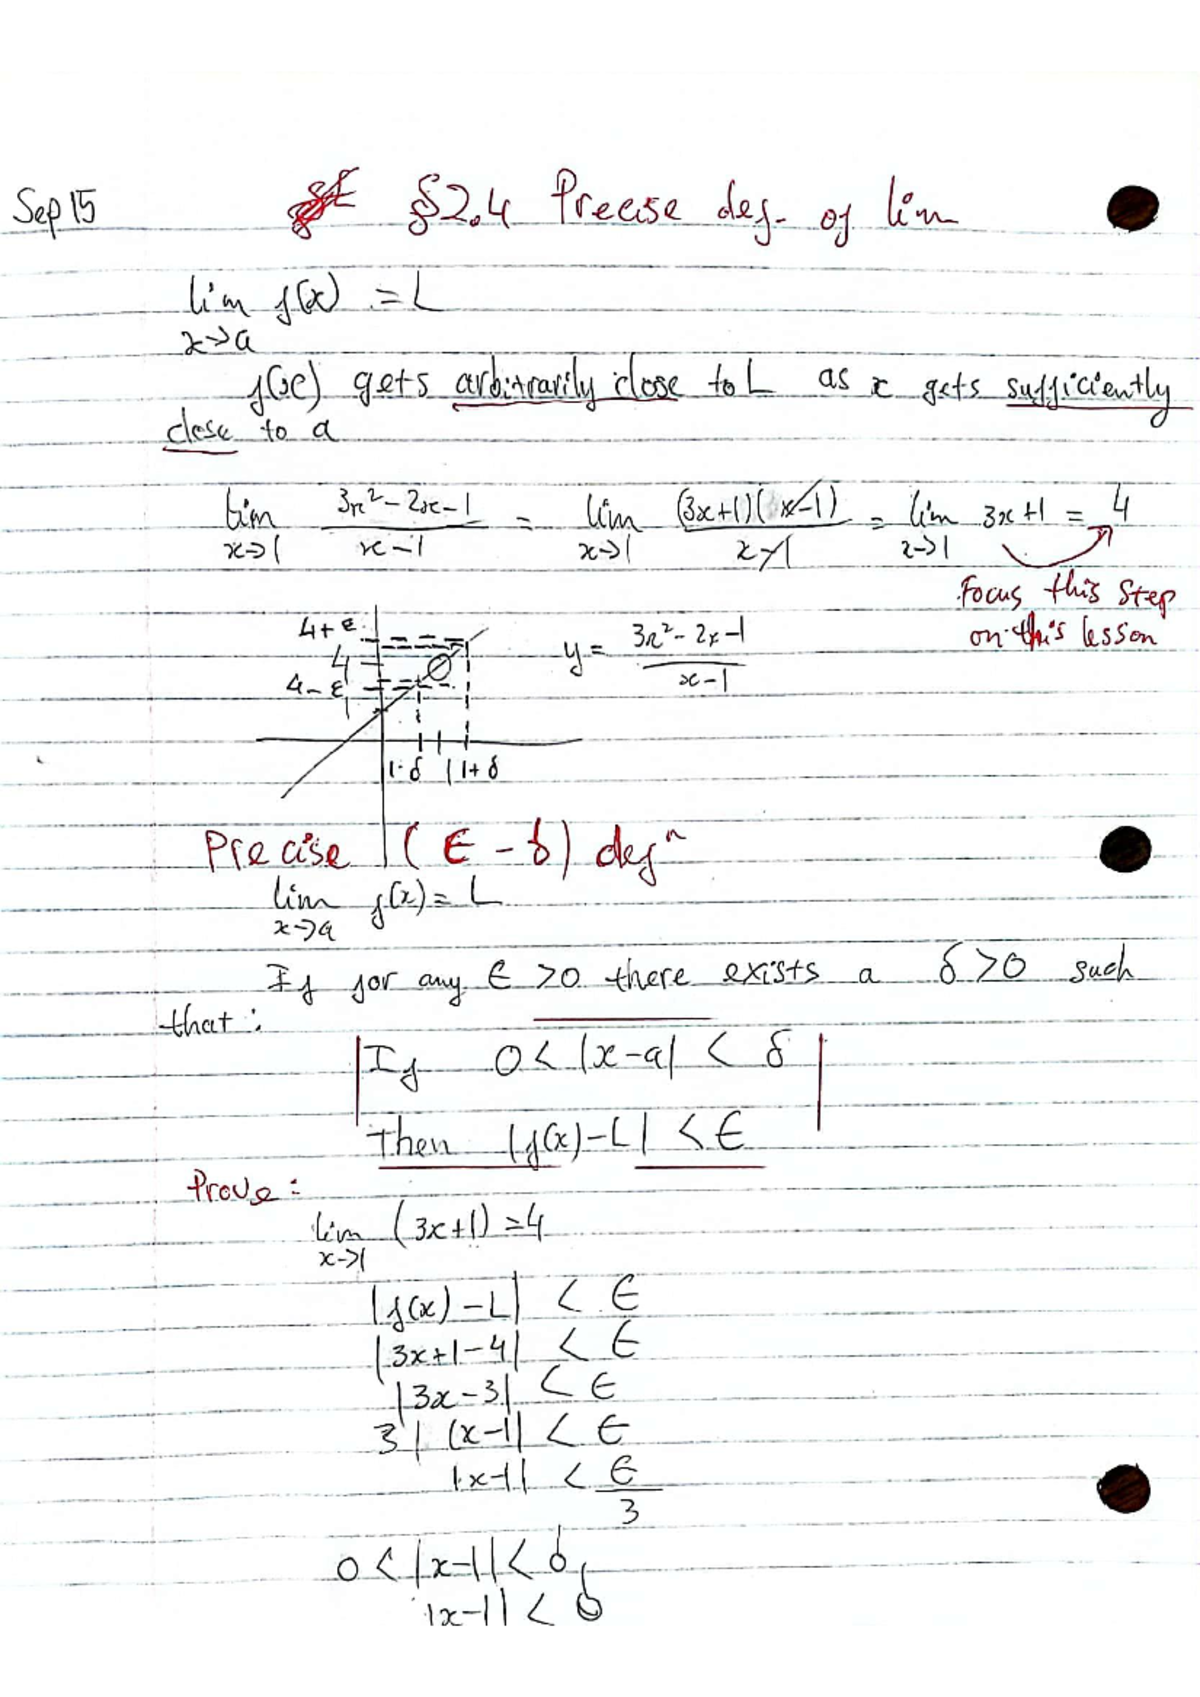 Sep 15
§2.4 Precise def. of lim
lim f(x) = L
x→a
f(x) gets arbitrarily close to L as x gets sufficiently
close to a
lim 3x²-2x-1 / x-1 = lim (3x+1)(x-1) / x-1 = lim 3x+1 = 4
x→1 x→1 x→1
Focus this step
on this lesson
4+ε
4
4-ε
1
y = 3x²-2x-1 / x-1
1-δ 1 1+δ
Precise (ε-δ) defⁿ
lim f(x) = L
x→a
If for any ε >0 there exists a δ>0 such
that:
If 0 < |x-a| < δ
Then |f(x)-L| < ε
Prove:
lim (3x+1) = 4
x→1
|f(x)-L| < ε
|3x+1-4| < ε
|3x-3| < ε
3|(x-1| < ε
|x-1| < ε/3
0 < |x-1| < δ
|x-1| < δ